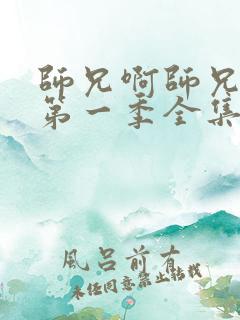 師兄啊師兄
第一季全集
風呂前有
未经同意禁止转载